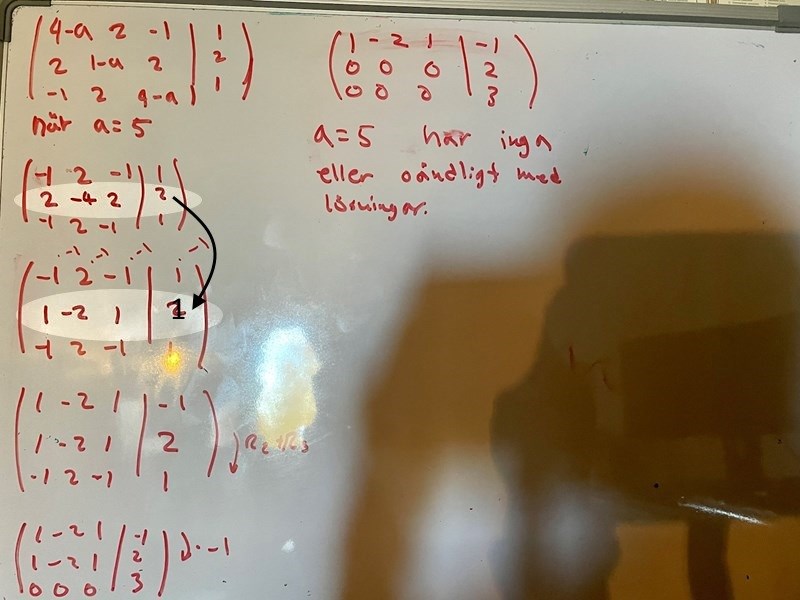 4-a 2 -1 | 1
2 1-a 2 | 2
-1 2 4-a | 1
när a=5
-1 2 -1 | 1
2 -4 2 | 2
-1 2 -1 | 1
·-1 ·-1 ·-1 ·-1
-1 2 -1 | 1
1 -2 1 | 1
-1 2 -1 | 1
1 -2 1 | -1
1 -2 1 | 2
-1 2 -1 | 1
R2+R3
1 -2 1 | -1
1 -2 1 | 2
0 0 0 | 3
·-1
1 -2 1 | -1
0 0 0 | 2
0 0 0 | 3
a=5 har inga
eller oändligt med
lösningar.